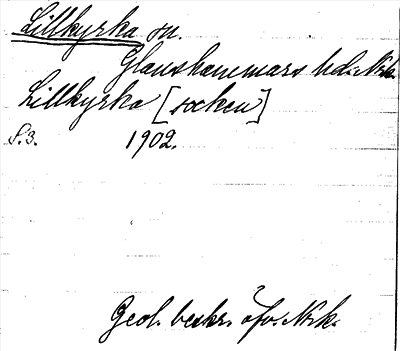 Lillkyrka sn.
Glanshammars hd. Nrk.
Lillkyrka [socken]
S. 3. 1902.
Geol. beskr. öfv. Nrk.